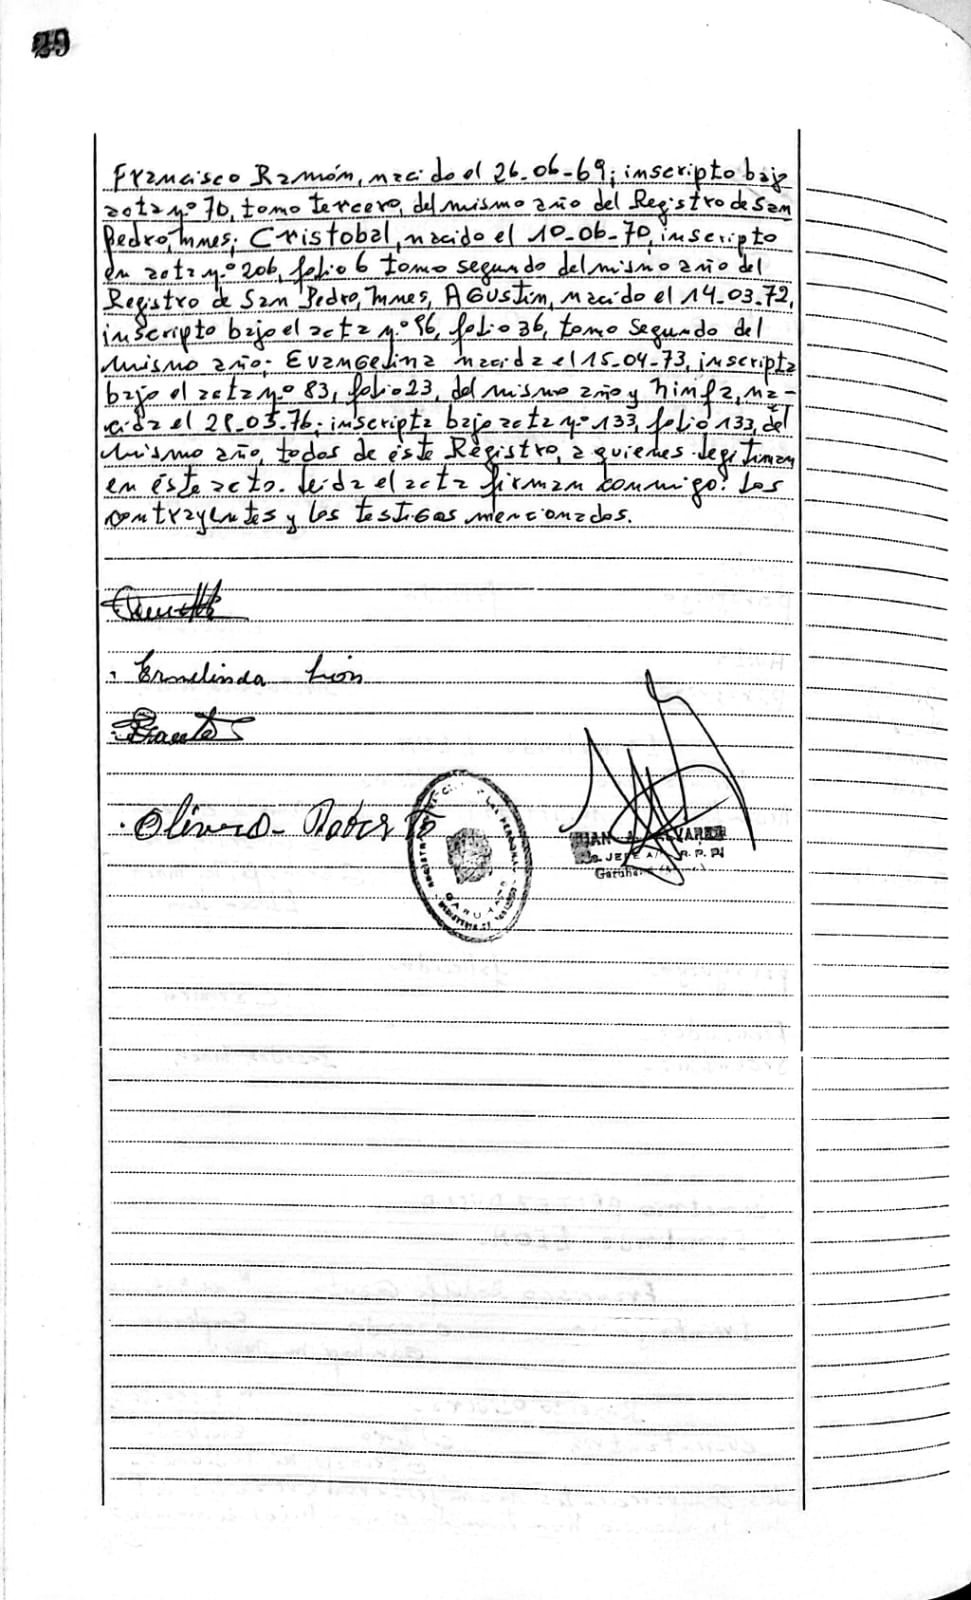 29
Francisco Ramón, nacido el 26-06-69; inscripto bajo
acta nº 70, tomo tercero, del mismo año del Registro de San
Pedro, Mnes; Cristobal, nacido el 10-06-70, inscripto
en acta nº 206, folio 6 tomo segundo del mismo año del
Registro de San Pedro, Mnes, AGustin, nacido el 14-03-72,
inscripto bajo el acta nº 96, folio 36, tomo segundo del
mismo año; Evangelina nacida el 15-04-73, inscripta
bajo el acta nº 83, folio 23, del mismo año y Ninfa, na-
cida el 28-03-76; inscripta bajo acta nº 133, folio 133, del
mismo año, todos de éste Registro, a quienes legitiman
en éste acto. Leida el acta firman conmigo: Los
contrayentes y los testigos mencionados.
Ermelinda León
Olivera - Roberto
JUAN ALVAREZ
JEFE R. P. P.
Garuha
GARUHAPE